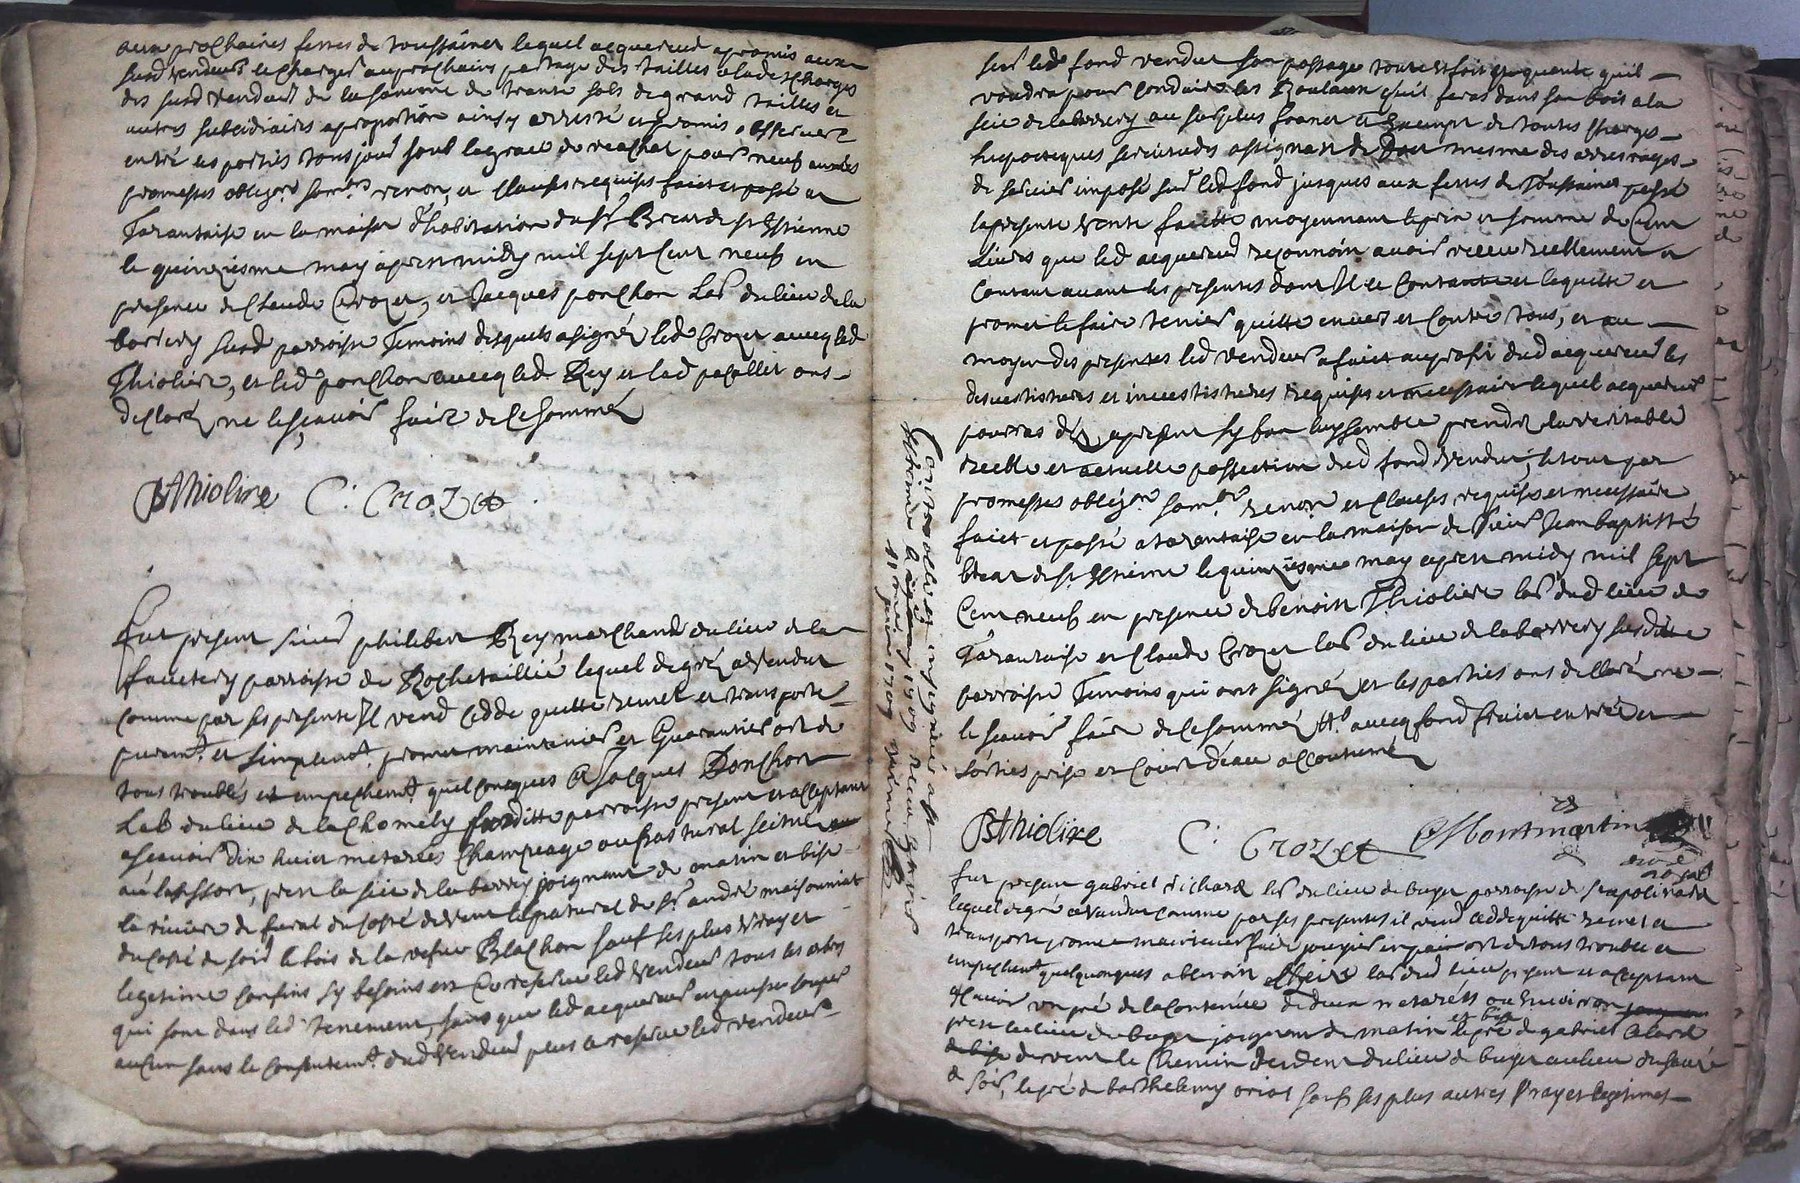 aux prochaines festes de toussainct lequel acquereur apromis aux
susd vendeurs le charger au prochain partage des tailles a la descharge
des susd vendeurs de la somme de trante sols de grand tailles et
autres subsidiaires aproportion ainsy arresté et promis observer
entre les parties tousjours soub la grace de reachat pour neuf années
promesses obligons renon, et clauses requises faict et passé au
Tarantaise en la maison d'habitation du Sr Beat de St Estienne
le quinziesme may apres midy mil sept cent neuf en
presence de Claude Crozet, et Jacques ponchon Lab du lieu de la
barrery susd parroisse Temoins desquels a signéz led Crozet avecq led
Thioliere, et led ponchon avecq led Rey et lad pacallet ons
declaré ne le sçavoir faire de ce sommé
BThiolire C: Crozet
Fut present sieur philibert Rey marchand du lieu de la
faverery parroisse de Rochetaillié lequel de gré a vendut
comme par ses presente Il vend cedde quitte remet et transporte
purement et simplemt promet maintenir et guarantir ort de
tous troubles et empechemt quelconques A Jacques Ponchon
Lab du lieu de la Chomely susditte parroisse present et acceptant
asçavoir dix huict metarées champeage ou pastural scitué
au lessfort, pres la scie de la barrery joignant de matin et bise
la riviere de furat du costé de vent le pastural de Sr andré maisonniat
du costé de soir le bois de la vefve Blachon sauf ses plus vray et
legetime confins sy besoins est Ce reserve led vendeur tous les arbres
qui sont dans led tenement, sans que led acquereur en puisse couper
aucun sans le consentemt dud vendeur plus ce reserve led vendeur
Controollé et insinué a St
Estienne le 1709 receu
1709
sur led fond vendut son passage toute et fois et quante quil
voudra pour conduire les Roulaux quil feras dans son bois a la
scie de la barrery au surplus franct et exempt de toutes charges
hypoteques servitudes assignaon de dot mesme des arrerages
de servis imposé sur led fond jusques aux festes de Toussainct passé
la presente vente faicte moyennant le prix et somme de Cent
Livres que led acquereur reconnoin avoir receu reellement et
contant avant les presentes dont Il ce contante et l'aquitte et
promet le faire tenir quitte envers et contre tous, et au
moyen des presentes led vendeur a faict au profit dud acquereur les
desvestitures et investitures requises et necessaire lequel acquereur
pourras dez apresent sy bon luy semble prendre la veritable
reelle et actuelle possection dud fond vendut; le tout par
promesses obligon renon et clauses requises et necessaire
faict et passé a tarantaise en la maison de sieur Jean baptiste
beat de St Estienne le quinziesme may apres midy mil sept
Cent neuf en presence de benoist Thioliere lab dud lieu de
Tarantaise et Claude Crozet lab du lieu de la barrery susditte
parroisse Temoins qui ont signéz et les parties ons declaré ne
le sçavoir faire de ce sommé avecq fond franct entrées et
sorties prise et cour d'eau accoutumé
BThiolire C: Crozet Montmartin
fut present gabriel richard lab du lieu de buyet parroisse de St apolinard
lequel de gré a vandut comme par ses presentes il vend cedde quitte remet et
transporte promet maintenir faire jouyr en pair ort de tous trouble et
empechemt quelquonques a benoin lab dud lieu present et acceptant
asçavoir un pré de la contenüe de deux metarées ou environ
pres le lieu de buyet joignant de matin et bise le pré de gabriel Alard
de vent le Chemin tendent du lieu de buyet au lieu
de soir, le pré de barthelemy oriol sauf ses plus autres vray et legetimes